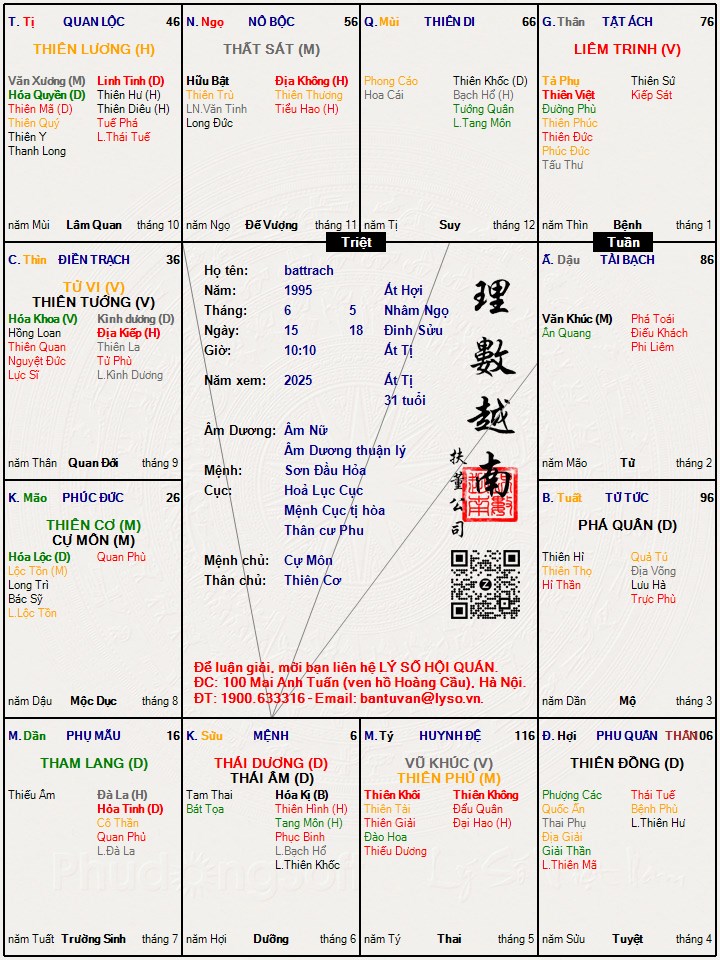 T. Tị QUAN LỘC 46
THIÊN LƯƠNG (H)
Văn Xương (M) Linh Tinh (D)
Hóa Quyền (D) Thiên Hư (H)
Thiên Mã (D) Thiên Diêu (H)
Thiên Quý Tuế Phá
Thiên Y L.Thái Tuế
Thanh Long
năm Mùi Lâm Quan tháng 10
N. Ngọ NÔ BỘC 56
THẤT SÁT (M)
Hữu Bật Địa Không (H)
Thiên Trù Thiên Thương
LN.Văn Tinh Tiểu Hao (H)
Long Đức
năm Ngọ Đế Vượng tháng 11
Q. Mùi THIÊN DI 66
Phong Cáo Thiên Khốc (D)
Hoa Cái Bạch Hổ (H)
Tướng Quân
L.Tang Môn
năm Tị Suy tháng 12
G. Thân TẬT ÁCH 76
LIÊM TRINH (V)
Tả Phụ Thiên Sứ
Thiên Việt Kiếp Sát
Đường Phù
Thiên Phúc
Thiên Đức
Phúc Đức
Tấu Thư
năm Thìn Bệnh tháng 1
Triệt
Tuần
C. Thìn ĐIỀN TRẠCH 36
TỬ VI (V)
THIÊN TƯỚNG (V)
Hóa Khoa (V) Kình dương (D)
Hồng Loan Địa Kiếp (H)
Thiên Quan Thiên La
Nguyệt Đức Tử Phù
Lực Sĩ L.Kình Dương
năm Thân Quan Đới tháng 9
Họ tên: battrach
Năm: 1995 Ất Hợi
Tháng: 6 5 Nhâm Ngọ
Ngày: 15 18 Đinh Sửu
Giờ: 10:10 Ất Tị
Năm xem: 2025 Ất Tị
31 tuổi
Âm Dương: Âm Nữ
Âm Dương thuận lý
Mệnh: Sơn Đầu Hỏa
Cục: Hoả Lục Cục
Mệnh Cục tị hòa
Thân cư Phu
Mệnh chủ: Cự Môn
Thân chủ: Thiên Cơ
理數越南
扶董公司
Để luận giải, mời bạn liên hệ LÝ SỐ HỘI QUÁN.
ĐC: 100 Mai Anh Tuấn (ven hồ Hoàng Cầu), Hà Nội.
ĐT: 1900.633316 - Email: bantuvan@lyso.vn.
Ấ. Dậu TÀI BẠCH 86
Văn Khúc (M) Phá Toái
Ân Quang Điếu Khách
Phi Liêm
năm Mão Tử tháng 2
K. Mão PHÚC ĐỨC 26
THIÊN CƠ (M)
CỰ MÔN (M)
Hóa Lộc (D) Quan Phù
Lộc Tồn (M)
Long Trì
Bác Sỹ
L.Lộc Tồn
năm Dậu Mộc Dục tháng 8
B. Tuất TỬ TỨC 96
PHÁ QUÂN (D)
Thiên Hỉ Quả Tú
Thiên Thọ Địa Võng
Hỉ Thần Lưu Hà
Trực Phù
năm Dần Mộ tháng 3
M. Dần PHỤ MẪU 16
THAM LANG (D)
Thiếu Âm Đà La (H)
Hỏa Tinh (D)
Cô Thần
Quan Phủ
L.Đà La
năm Tuất Trường Sinh tháng 7
K. Sửu MỆNH 6
THÁI DƯƠNG (D)
THÁI ÂM (D)
Tam Thai Hóa Kị (B)
Bát Tọa Thiên Hình (H)
Tang Môn (H)
Phục Binh
L.Bạch Hổ
L.Thiên Khốc
năm Hợi Dưỡng tháng 6
M. Tý HUYNH ĐỆ 116
VŨ KHÚC (V)
THIÊN PHỦ (M)
Thiên Khôi Thiên Không
Thiên Tài Đẩu Quân
Thiên Giải Đại Hao (H)
Đào Hoa
Thiếu Dương
năm Tý Thai tháng 5
Đ. Hợi PHU QUÂN THÂN 106
THIÊN ĐỒNG (D)
Phượng Các Thái Tuế
Quốc Ấn Bệnh Phù
Thai Phụ L.Thiên Hư
Địa Giải
Giải Thần
L.Thiên Mã
năm Sửu Tuyệt tháng 4